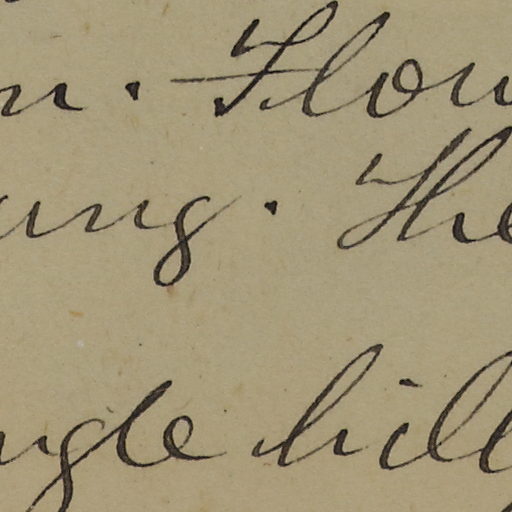 n. Flow
ung. The
ngle hill